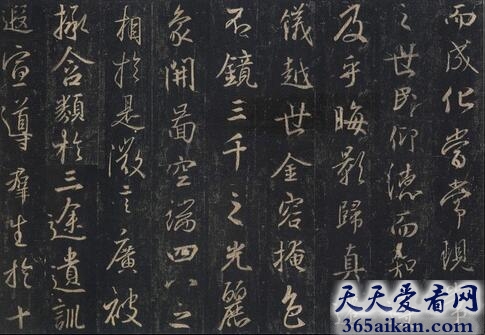 而成化當常現常
之世民仰德而知
及乎晦影歸真
儀越世金容掩色
不鏡三千之光麗
象開圖空端四八之
相於是微言廣被
拯含類於三途遺訓
遐宣導羣生於十
天天爱看网
365aikan.com